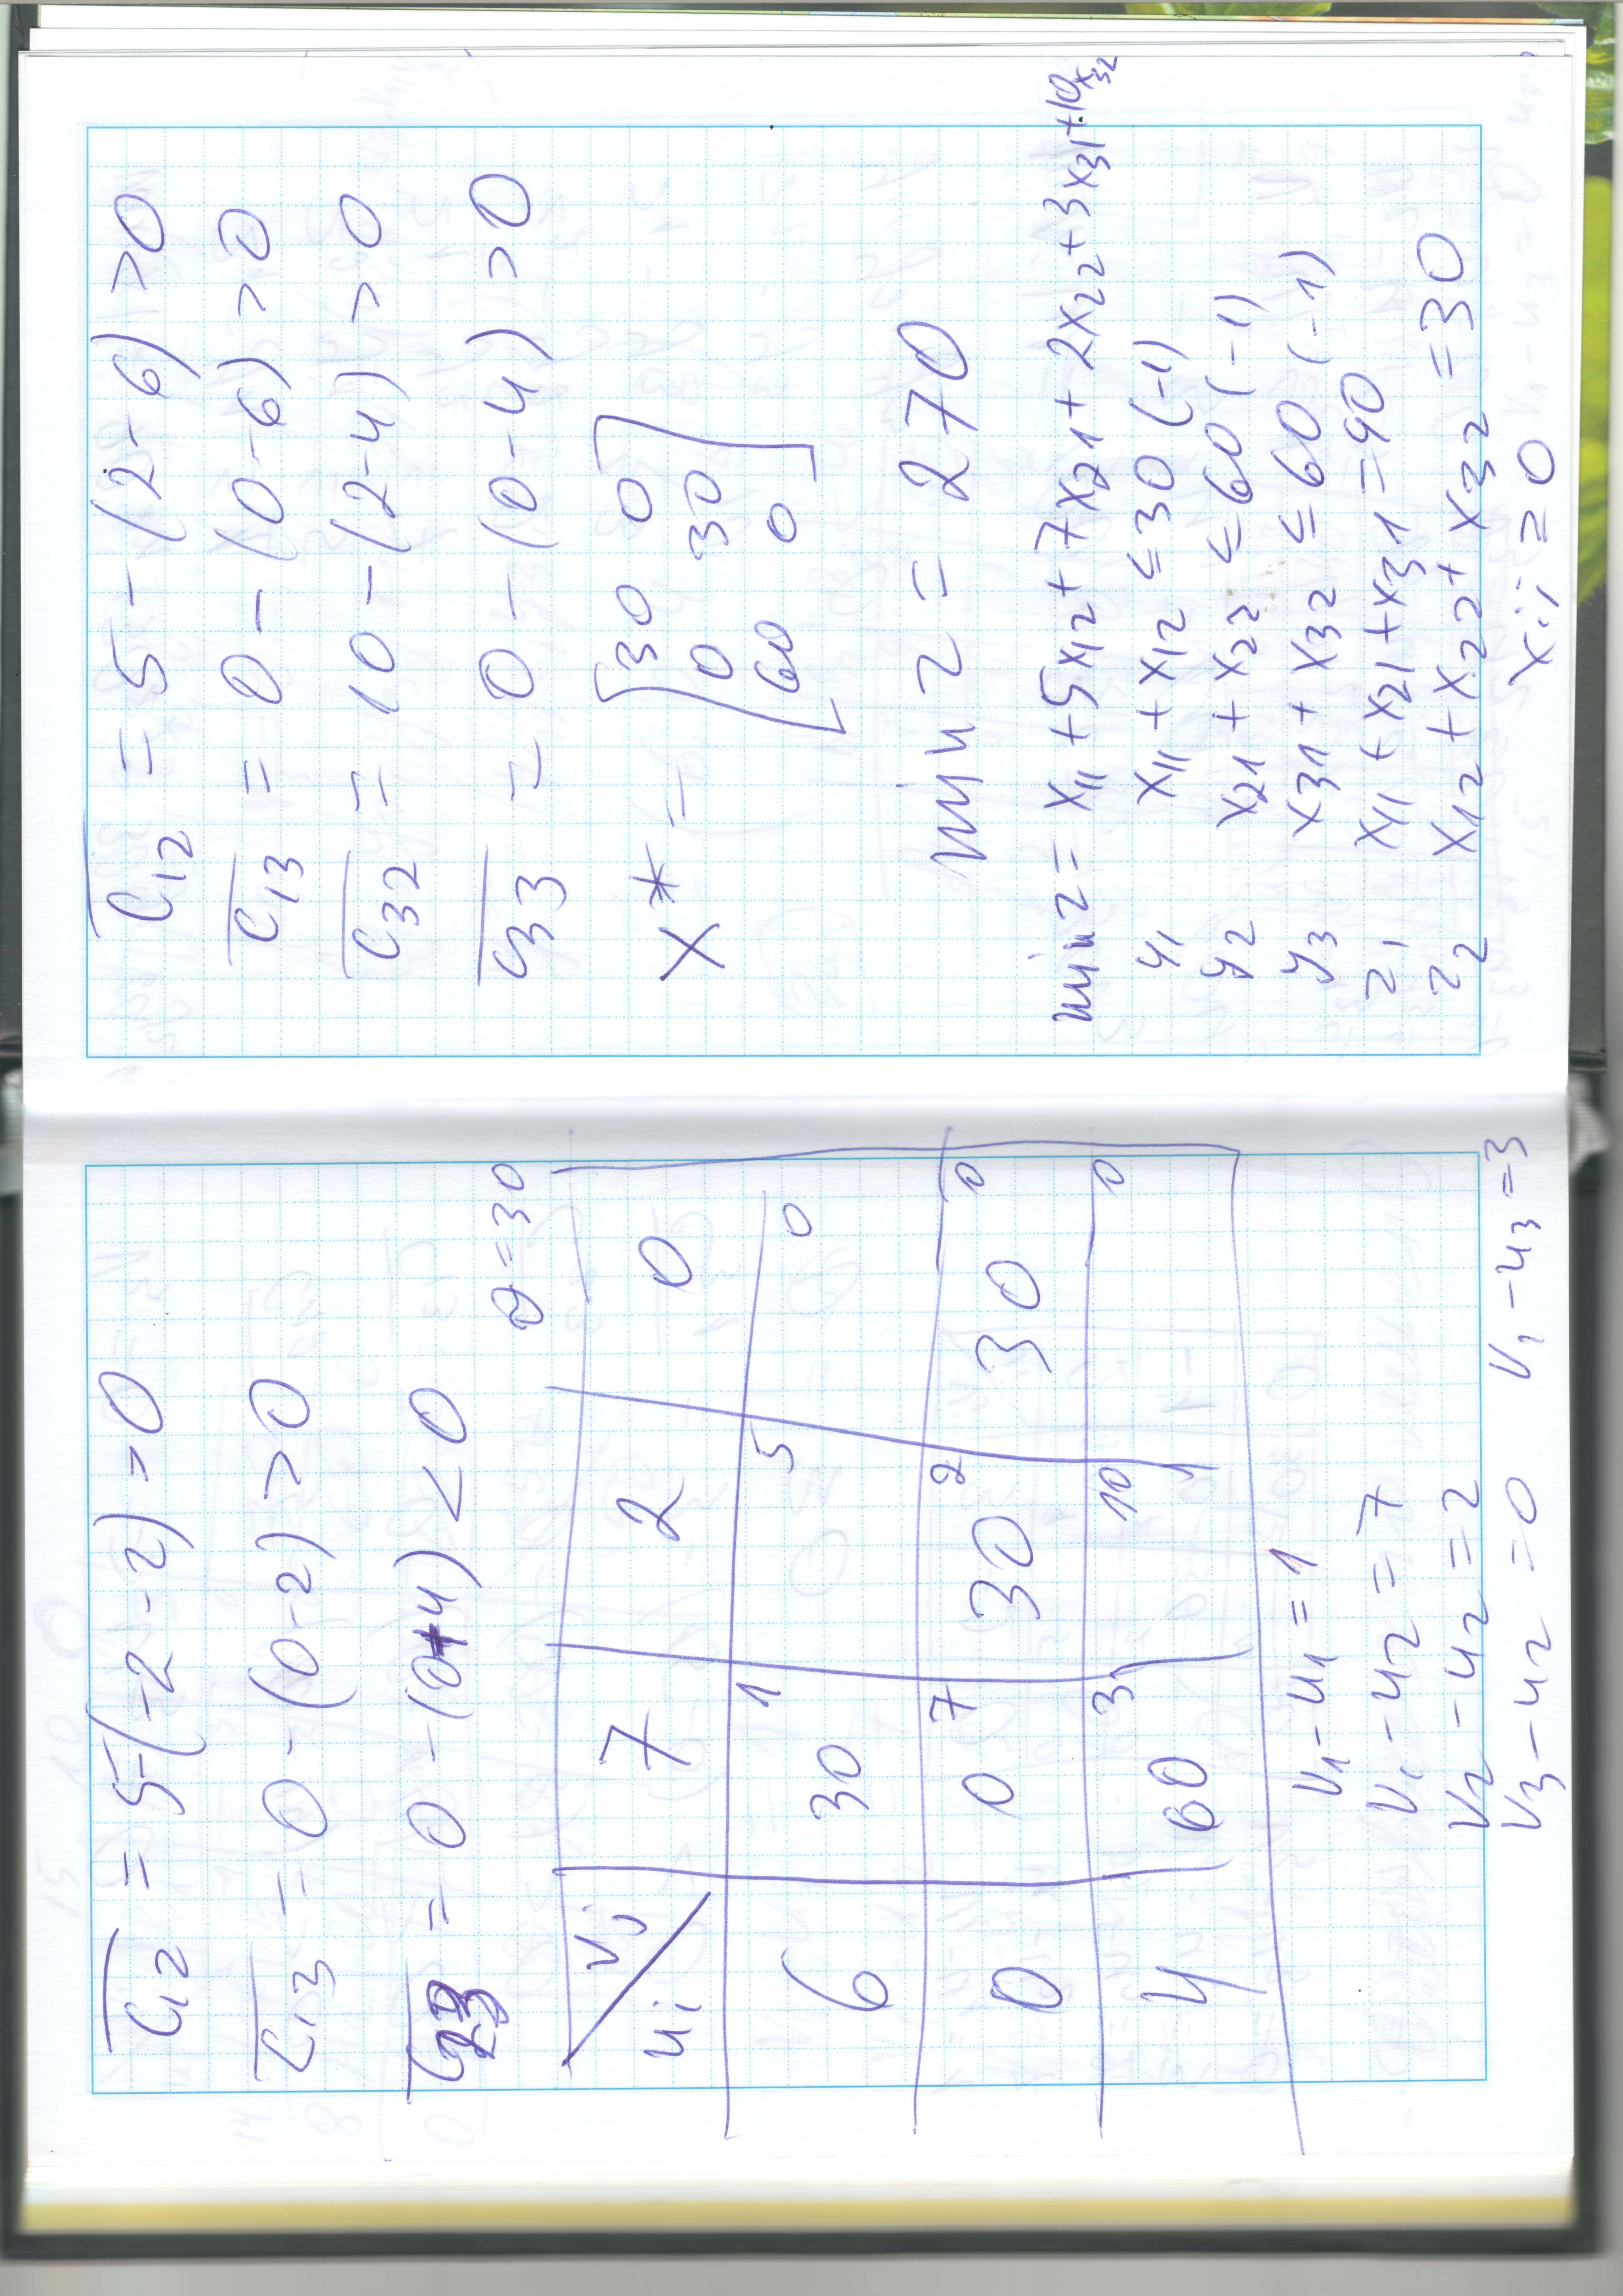 C̅₁₂ = 5-(-2-2) > 0
C̅₁₃ = 0-(0-2) > 0
C̅₂₃ = 0-(0+4) < 0
θ=30
uᵢ \ vⱼ 7 2 0
6 30 1 5 0
0 0 7 30 2 30 0
4 60 3 10 0
v₁-u₁=1
v₁-u₂=7
v₂-u₂=2
v₃-u₂=0 v₁-u₃=3
C̅₁₂ = 5-(2-6) > 0
C̅₁₃ = 0-(0-6) > 0
C̅₃₂ = 10-(2-4) > 0
C̅₃₃ = 0-(0-4) > 0
X* = [30 0
0 30
60 0]
min z = 270
min z = x₁₁+5x₁₂+7x₂₁+2x₂₂+3x₃₁+10x₃₂
y₁ x₁₁+x₁₂ ≤ 30 (-1)
y₂ x₂₁+x₂₂ ≤ 60 (-1)
y₃ x₃₁+x₃₂ ≤ 60 (-1)
z₁ x₁₁+x₂₁+x₃₁=90
z₂ x₁₂+x₂₂+x₃₂=30
xᵢⱼ ≥ 0